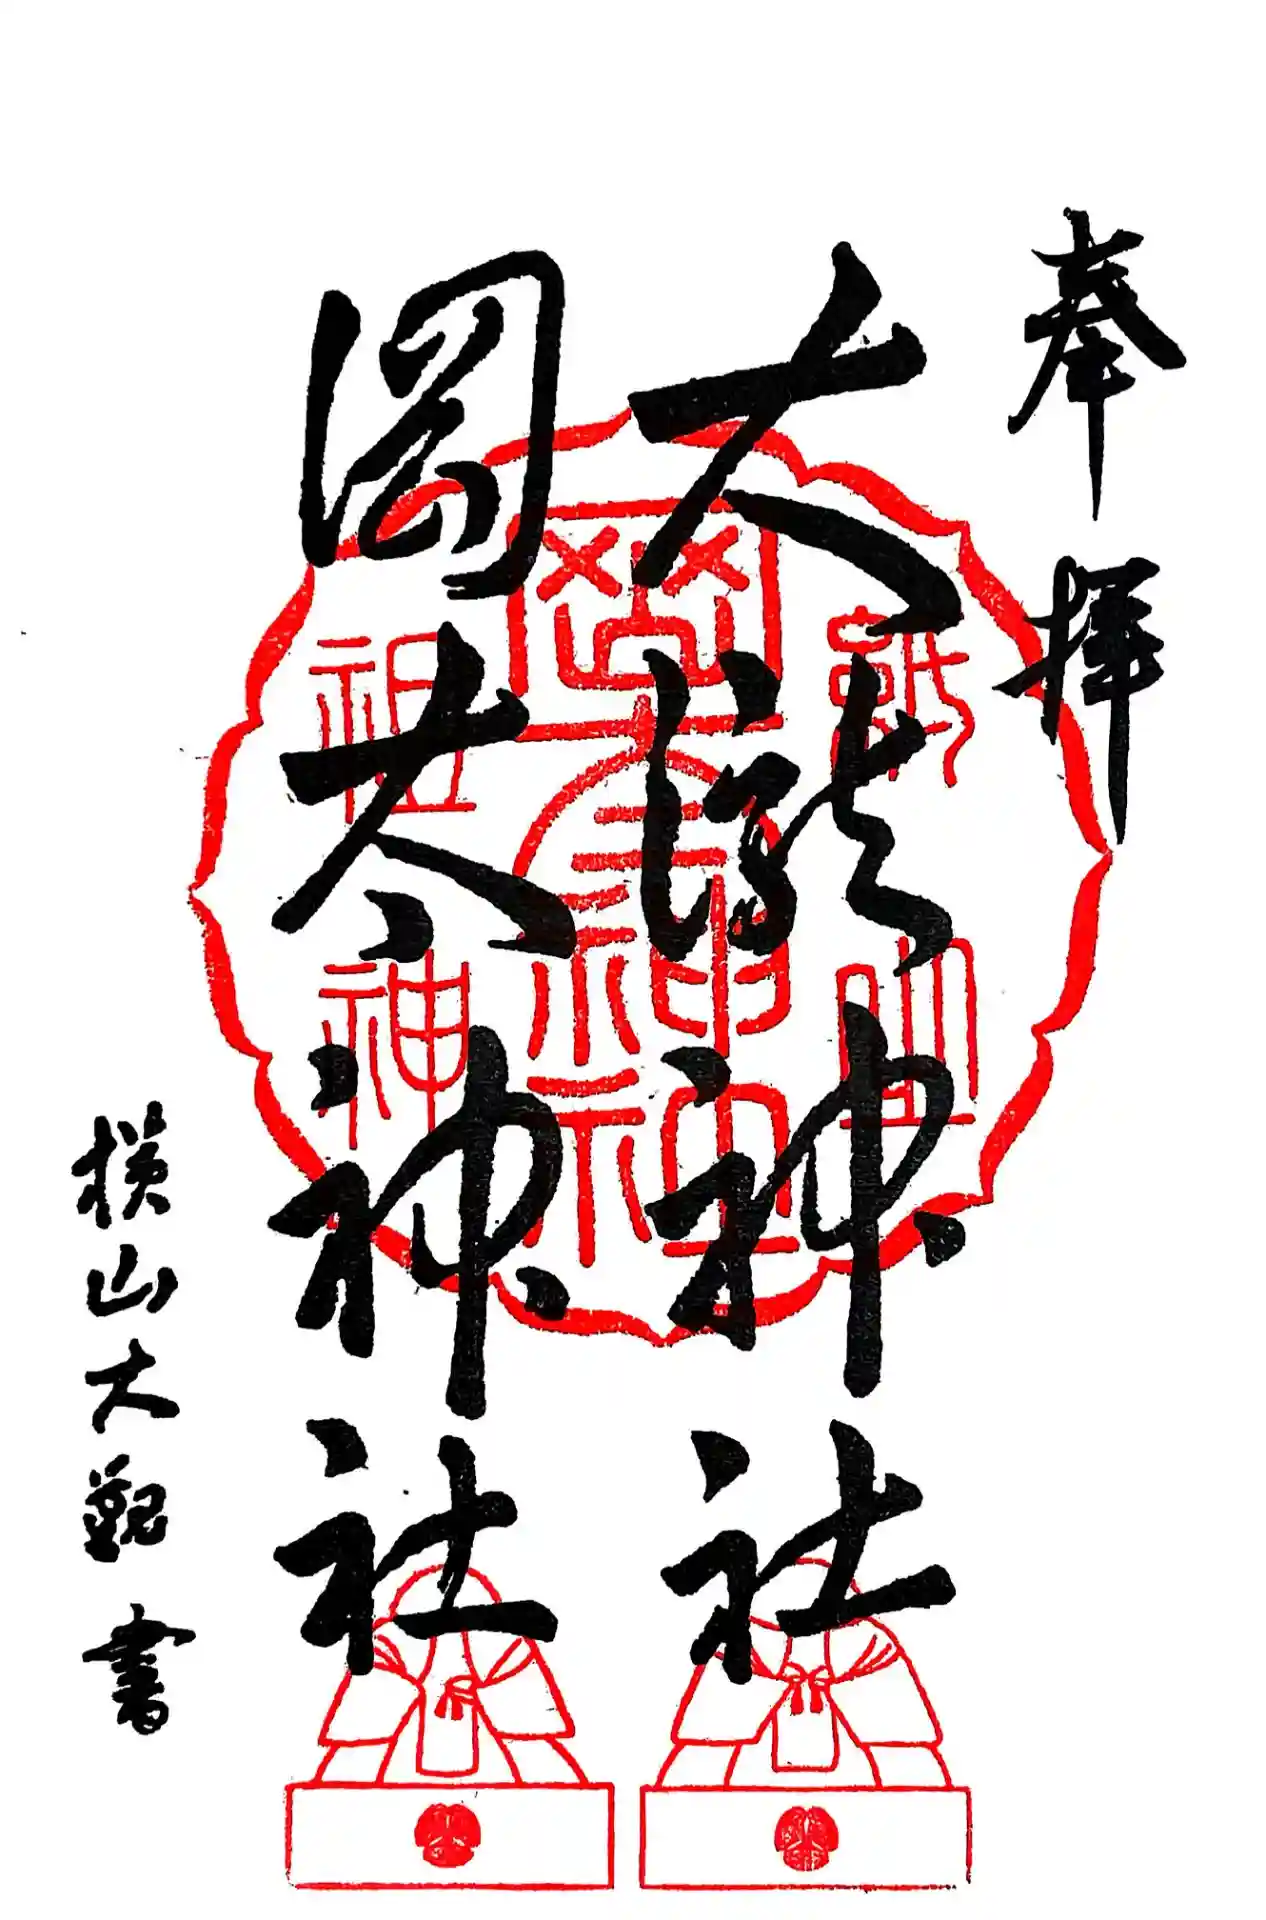 奉拝
大瀧神社
岡太神社
横山大觀書